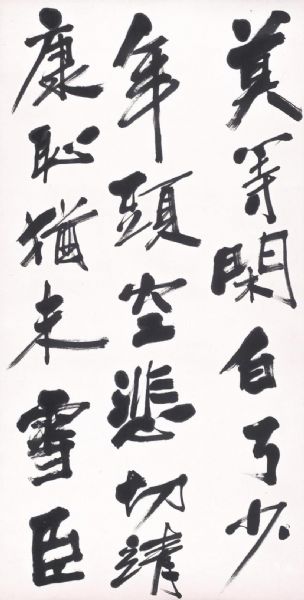 莫等閑白了少
年頭空悲切靖
康恥猶未雪臣